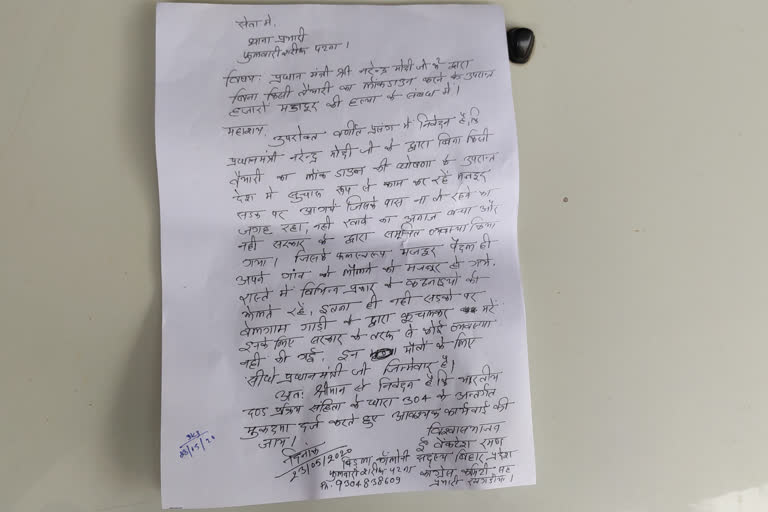 सेवा में,
थाना प्रभारी
फुलवारी शरीफ पटना।
विषय: प्रधान मंत्री श्री नरेन्द्र मोदी जी के द्वारा
बिना किसी तैयारी का लॉकडाउन करने के उपरान्त
हजारों मजदूर की हत्या के संबंध में।
महाशय,
उपरोक्त वर्णीत प्रसंग में निवेदन है, कि
प्रधानमंत्री नरेन्द्र मोदी जी के द्वारा बिना किसी
तैयारी का लॉक डाउन की घोषणा के उपरान्त
देश में सुचारू रूप से काम कर रहे मजदूर
सड़क पर आ गये जिसके पास ना तो रहने का
जगह रहा, नही खाने का अनाज बचा और
नही सरकार के द्वारा समुचित व्यवस्था किया
गया। जिसके फलस्वरूप मजदूर पैदल ही
अपने गांव को लौटने को मजबूर हो गये,
रास्ते में विभिन्न प्रकार के कठनाइयों को
झेलते रहें, इतना ही नही सड़को पर
बेलगाम गाड़ी के द्वारा कुचलकर मरें
इनके लिए सरकार के तरफ से कोई व्यवस्था
नही की गई, इन मौतों के लिए
सीधे प्रधानमंत्री जी जिम्मेवार है।
अतः श्रीमान से निवेदन है कि भारतीय
दण्ड संहिता के धारा 304 के अन्तर्गत
मुकदमा दर्ज करते हुए आवश्यक कार्रवाई की
जाय।
विश्वासभाजन
दिनांक
ई वेंकटेश रमण
23/05/2020
बिड़ला कॉलोनी सदस्य बिहार प्रदेश
फुलवारी शरीफ पटना कांग्रेस कमिटी सह
9304838609 प्रभारी
23/05/20